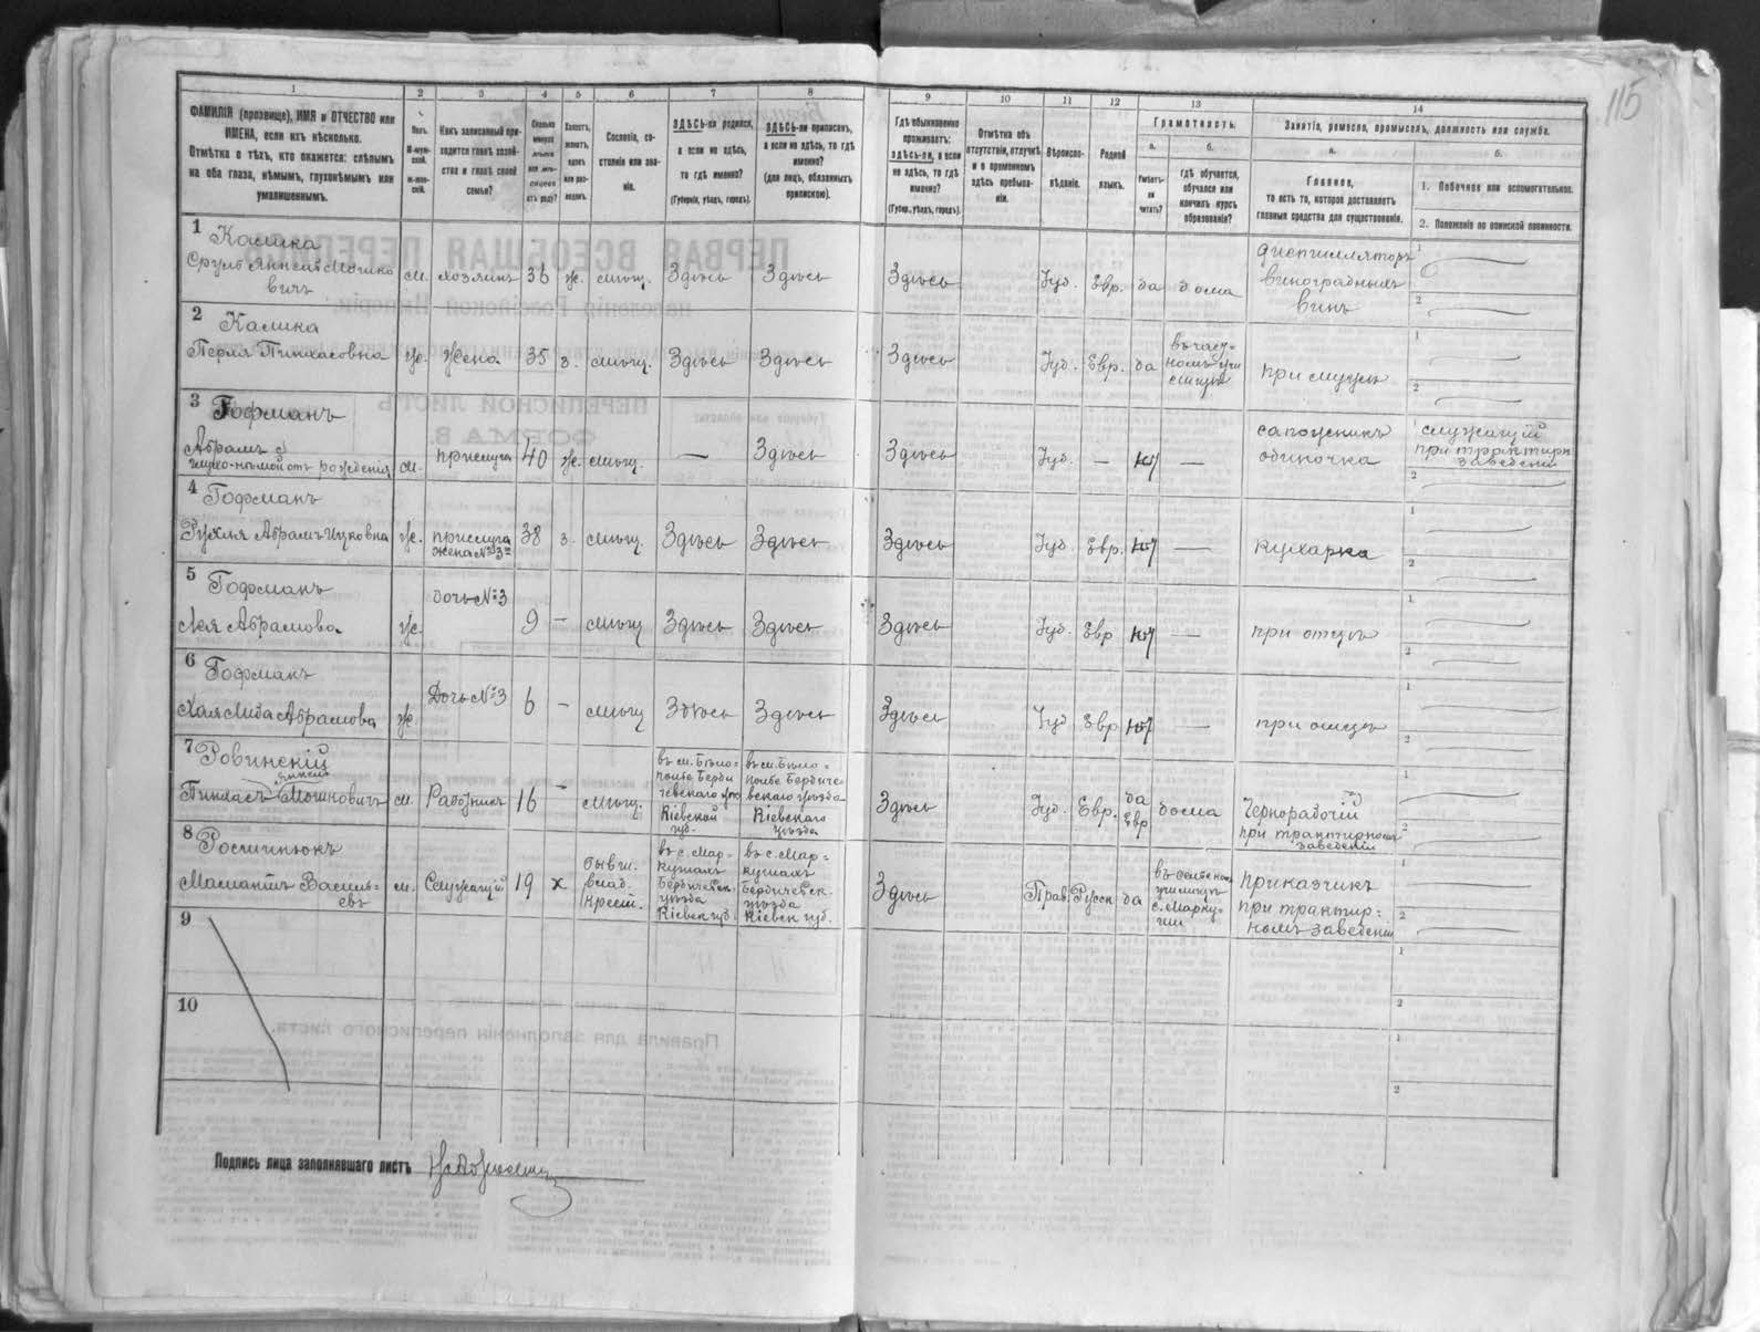 115
1 2 3 4 5 6 7 8 9 10 11 12 13 14
ФАМИЛІЯ (прозвище), ИМЯ и ОТЧЕСТВО или
ИМЕНА, если ихъ нѣсколько.
Отмѣтка о тѣхъ, кто окажется: слѣпымъ
на оба глаза, нѣмымъ, глухонѣмымъ или
умалишеннымъ.
Полъ.
Какъ записанный при-
ходится главѣ хозяй-
ства и главѣ своей
семьи?
Сословіе, со-
стояніе или зва-
ніе.
ЗДѢСЬ-ли родился,
а если не здѣсь,
то гдѣ именно?
(Губернія, уѣздъ, городъ).
ЗДѢСЬ-ли приписанъ,
а если не здѣсь, то гдѣ
именно?
(для лицъ, обязанныхъ
припискою).
Гдѣ обыкновенно
проживаетъ:
здѣсь-ли, а если
не здѣсь, то гдѣ
именно?
(Губер., уѣздъ, городъ).
Отмѣтка объ
отсутствіи, отлучкѣ
и о временномъ
здѣсь пребыва-
ніи.
Вѣроиспо-
вѣданіе.
Родной
языкъ.
Грамотность.
а.
Умѣетъ-
ли
читать?
б.
гдѣ обучается,
обучался или
кончилъ курсъ
образованія?
Занятіе, ремесло, промыселъ, должность или служба.
а.
Главное,
то есть то, которое доставляетъ
главныя средства для существованія.
б.
1. Побочное или вспомогательное.
2. Положеніе по воинской повинности.
1 Калика
Сруль Янкель Мошко
вичъ м. хозяинъ 36 ж. мѣщ. Здѣсь Здѣсь Здѣсь Іуд. Евр. да дома
дистилляторъ
виноградныхъ
винъ
2 Калика
Перля Пинхасовна ж. жена 35 з. мѣщ. Здѣсь Здѣсь Здѣсь Іуд. Евр. да
въ част-
номъ учи
лищѣ
при мужѣ
3 Гофманъ
Абрамъ
глухо-нѣмой отъ рожденія м. прислуга 40 ж. мѣщ. — Здѣсь Здѣсь Іуд. — —
сапожникъ
одиночка
служащій
при трактирн
заведеніи
4 Гофманъ
Рухля Абрамъ Ицковна ж. прислуга
жена № 3го
38 з. мѣщ. Здѣсь Здѣсь Здѣсь Іуд. Евр. — кухарка
5 Гофманъ
Лея Абрамова ж. дочь № 3 9 — мѣщ Здѣсь Здѣсь Здѣсь Іуд. Евр — при отцѣ
6 Гофманъ
Хая Либа Абрамова ж. Дочь № 3 6 — мѣщ Здѣсь Здѣсь Здѣсь Іуд Евр — при отцѣ
7 Ровинскій
Пинхасъ Мошковичъ м. Работникъ 16 — мѣщ.
въ м. Бѣло-
польѣ Берди
чевскаго уѣз
Кіевской
губ.
въ м. Бѣло-
польѣ Бердиче
вскаго уѣзда
Кіевскаго
уѣзда
Здѣсь Іуд. Евр. да
Евр
дома
Чернорабочій
при трактирномъ
заведеніи
8
Василь-
евъ м. Служащій 19 х
бывш.
влад.
крест.
въ с. Мар-
кушахъ
Бердичевск.
уѣзда
Кіевск губ.
въ с. Мар-
кушахъ
Бердичевск.
уѣзда
Кіевск губ.
Здѣсь Прав. Русск да
въ сельском
училищѣ
с. Марку-
ши
приказчикъ
при трактир-
номъ заведеніи
9
10
Подпись лица заполнявшаго листъ